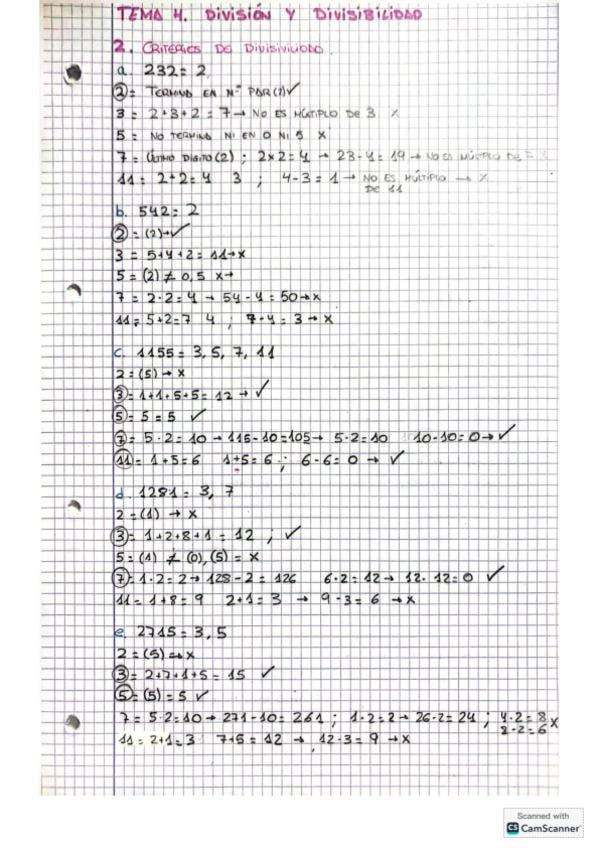 TEMA 4. DIVISIÓN Y DIVISIBILIDAD
2. CRITERIOS DE DIVISIVILIDAD.
a. 232 = 2,
2 = TERMINA EN Nº PAR (2) ✓
3 = 2+3+2 = 7 → NO ES MÚLTIPLO DE 3 X
5 = NO TERMINA NI EN 0 NI 5 X
7 = ÚLTIMO DÍGITO (2) ; 2x2 = 4 → 23-4 = 19 → NO ES MÚLTIPLO DE 7 X
11 = 2+2 = 4 3 ; 4-3 = 1 → NO ES MÚLTIPLO → X
DE 11
b. 542 = 2
2 = (2) → ✓
3 = 5+4+2 = 11 → X
5 = (2) ≠ 0,5 X →
7 = 2·2 = 4 → 54-4 = 50 → X
11 = 5+2 = 7 4 ; 7-4 = 3 → X
c. 1155 = 3, 5, 7, 11
2 = (5) → X
3 = 1+1+5+5 = 12 → ✓
5 = 5 = 5 ✓
7 = 5·2 = 10 → 115-10 = 105 → 5·2 = 10 10-10 = 0 → ✓
11 = 1+5 = 6 1+5 = 6 ; 6-6 = 0 → ✓
d. 1281 = 3, 7
2 = (1) → X
3 = 1+2+8+1 = 12 ; ✓
5 = (1) ≠ (0), (5) = X
7 = 1·2 = 2 → 128-2 = 126 6·2 = 12 → 12-12 = 0 ✓
11 = 1+8 = 9 2+1 = 3 → 9-3 = 6 → X
e. 2715 = 3, 5
2 = (5) → X
3 = 2+7+1+5 = 15 ✓
5 = (5) = 5 ✓
7 = 5·2 = 10 → 271-10 = 261 ; 1·2 = 2 → 26-2 = 24 ; 4·2 = 8 X
8-2 = 6
11 = 2+1 = 3 7+5 = 12 → 12-3 = 9 → X
Scanned with
CS CamScanner